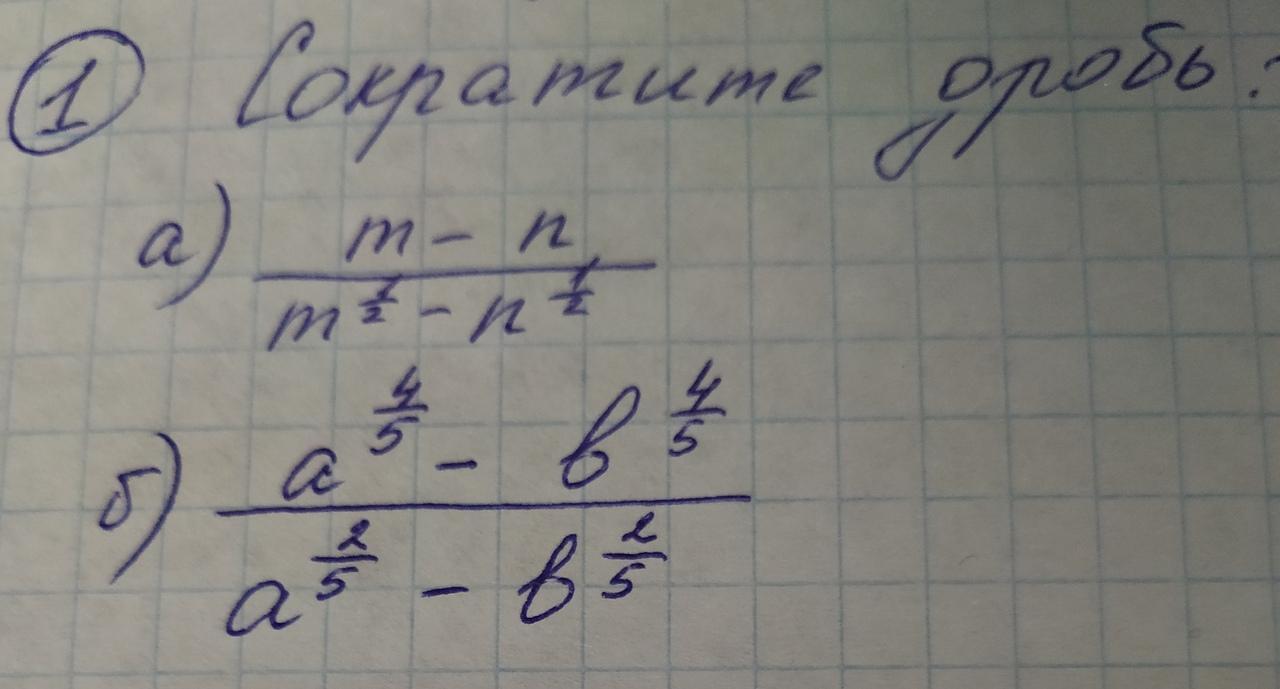 ① Сократите дробь:
а) \frac{m - n}{m^{\frac{1}{2}} - n^{\frac{1}{2}}}
б) \frac{a^{\frac{4}{5}} - b^{\frac{4}{5}}}{a^{\frac{2}{5}} - b^{\frac{2}{5}}}